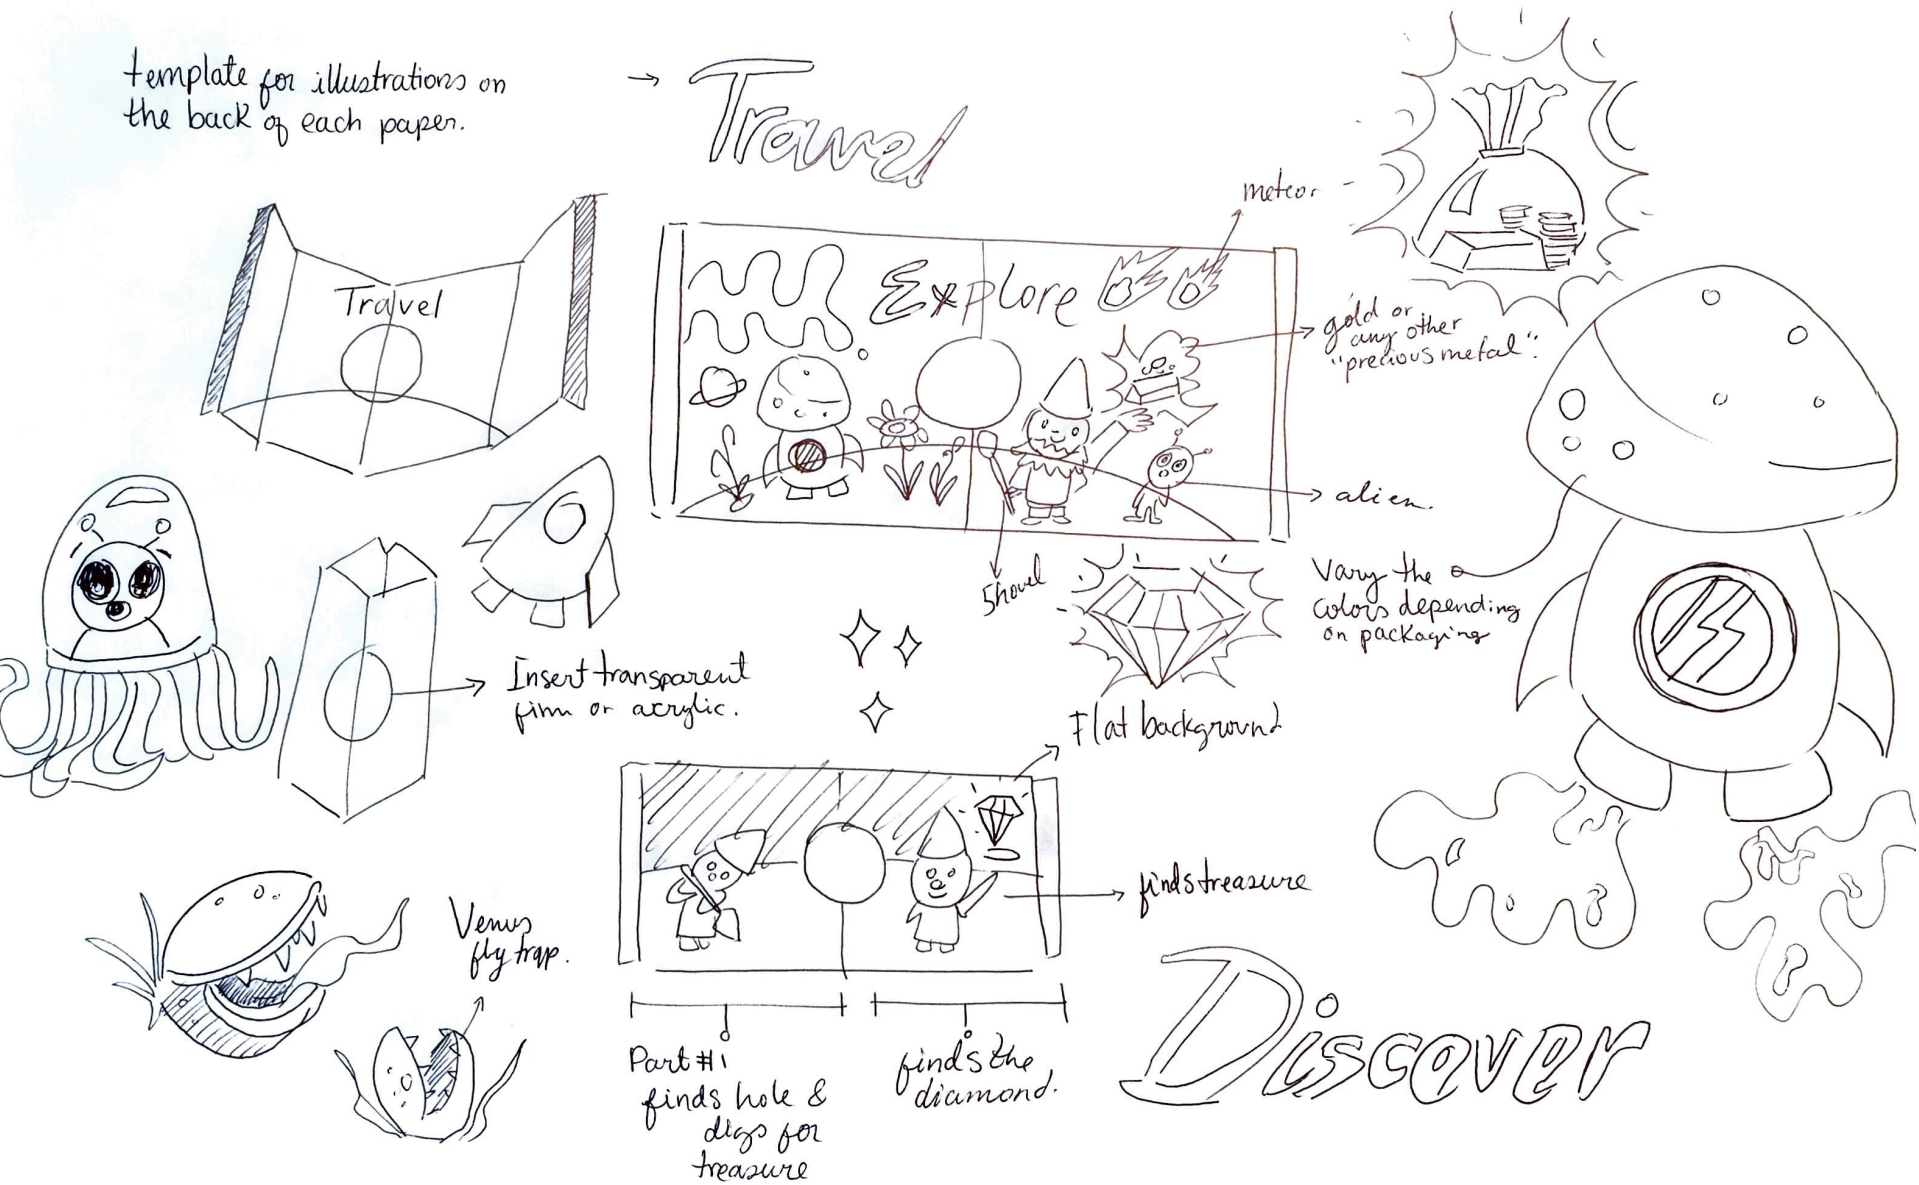 template for illustrations on
the back of each paper.
→ Travel
Travel
Explore
meteor
gold or
any other
"precious metal".
alien.
Shovel
Vary the
colors depending
on packaging
Insert transparent
film or acrylic.
Flat background
finds treasure
Venus
fly trap.
Part #1
finds hole &
digs for
treasure
finds the
diamond.
Discover